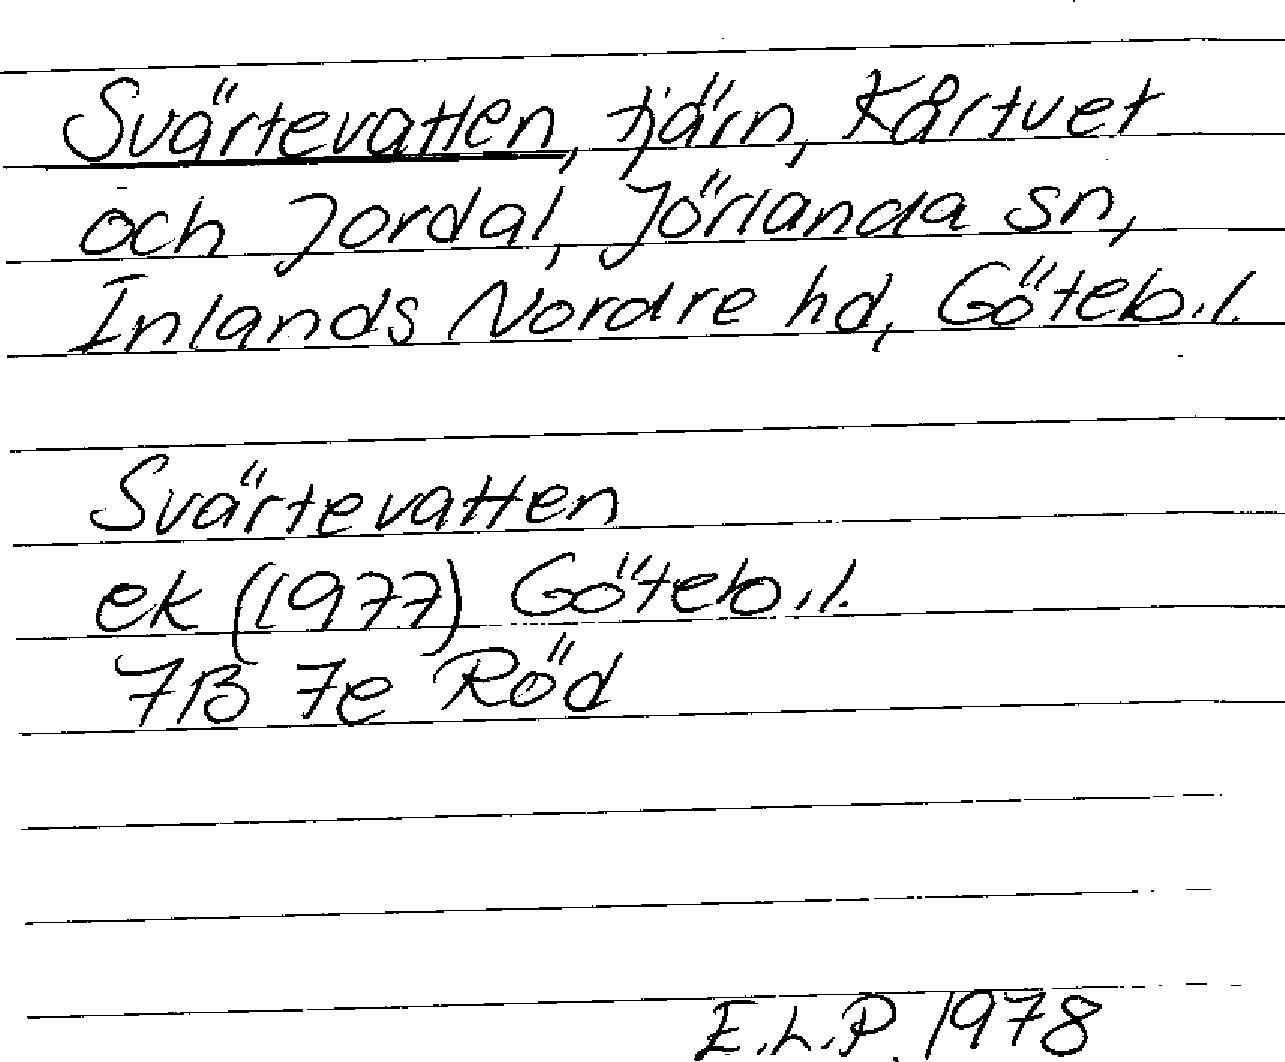 Svärtevatten, tjärn, Kårtvet
och Jordal, Jörlanda sn,
Inlands Nordre hd, Göteb.l.
Svärtevatten
ek (1977) Göteb.l.
7B 7e Röd
E.L.P. 1978